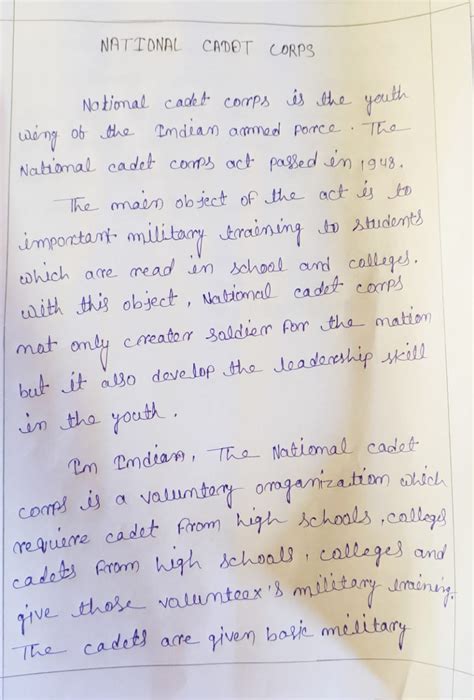 NATIONAL CADET CORPS
National cadet corps is the youth
wing of the Indian armed porce. The
National cadet corps act passed in 1948.
The main object of the act is to
important military training to students
which are read in school and colleges.
with this object, National cadet corps
not only creater soldier for the nation
but it also develop the leadership skill
in the youth.
In Indian, The National cadet
corps is a valuntary oraganization which
requiere cadet from high schools, colleges
cadets from high schools, colleges and
give those valunteex's military training.
The cadets are given basic military